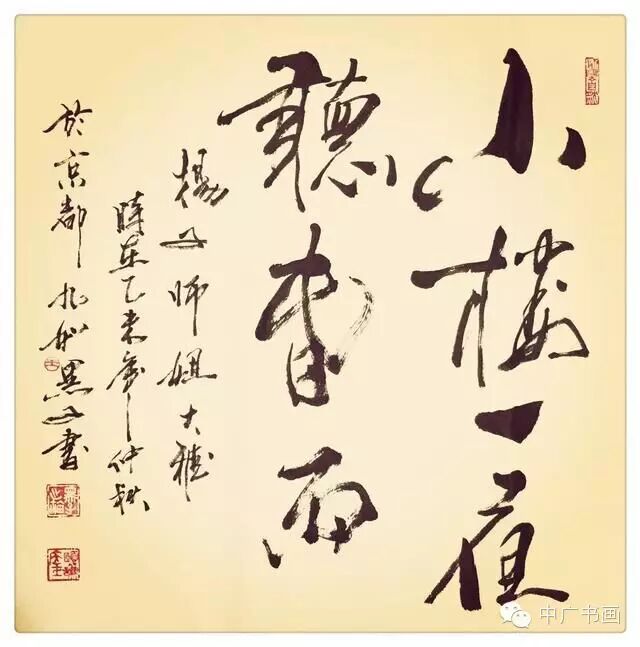 小樓一夜
聽春雨
楊子師姐大雅
時在乙未年仲秋
於京都 墨子書
中广书画